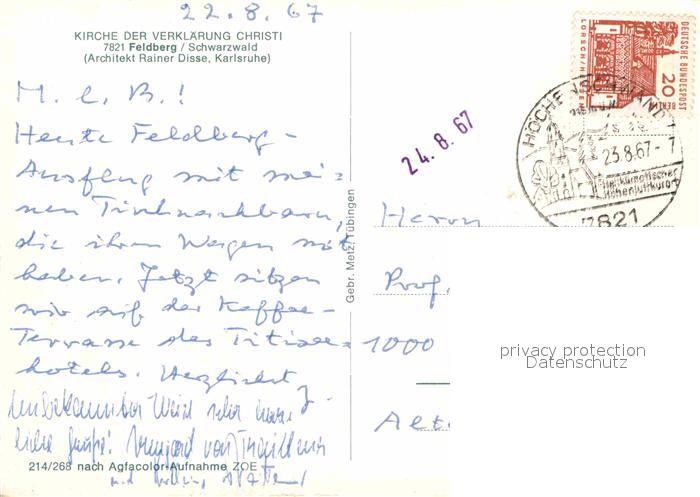 22.8.67
KIRCHE DER VERKLÄRUNG CHRISTI
7821 Feldberg / Schwarzwald
(Architekt Rainer Disse, Karlsruhe)
M. l. B.!
Heute Feldberg-
Ausflug mit mei=
nen Tischnachbarn,
die ihren Wagen mit
haben. Jetzt sitzen
wir auf der Kaffee-
Terrasse des Titisee=
hotels. Herzlichst
J.
Unbekannter Weise sehr
liebe Grüße! Irmgard von
214/268 nach Agfacolor-Aufnahme ZOE
Gebr. Metz, Tübingen
24. 8. 67
DEUTSCHE BUNDESPOST
BERLIN
20
LORSCH/HESSEN
HÖCHENSCHWAND
23.8.67-7
Heilklimatischer
Höhenluftkurort
7821
Herrn
Prof.
1000
Alt.
privacy protection
Datenschutz